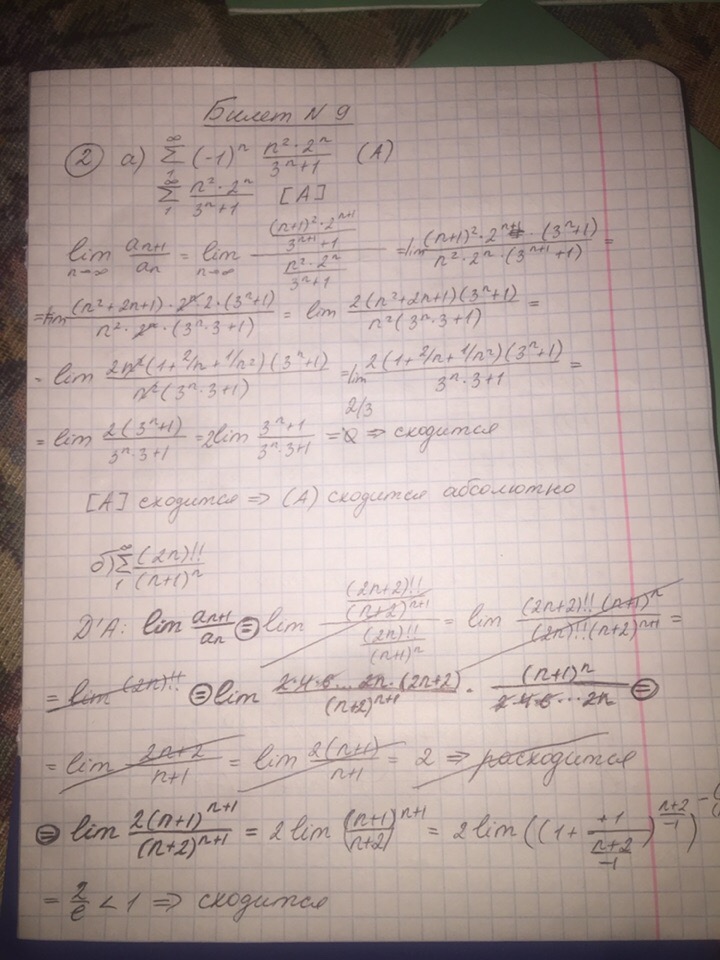 Билет N 9
② а) ∑₁^∞ (-1)ⁿ (n²·2ⁿ)/(3ⁿ+1) (A)
∑₁^∞ (n²·2ⁿ)/(3ⁿ+1) [A]
lim_{n→∞} a_{n+1}/a_n = lim_{n→∞} (((n+1)²·2ⁿ⁺¹)/(3ⁿ⁺¹+1))/((n²·2ⁿ)/(3ⁿ+1)) = lim ((n+1)²·2ⁿ⁺¹·(3ⁿ+1))/(n²·2ⁿ·(3ⁿ⁺¹+1)) =
= lim ((n²+2n+1)·2ⁿ·2·(3ⁿ+1))/(n²·2ⁿ·(3ⁿ·3+1)) = lim (2(n²+2n+1)(3ⁿ+1))/(n²(3ⁿ·3+1)) =
= lim (2n²(1+2/n+1/n²)(3ⁿ+1))/(n²(3ⁿ·3+1)) = lim (2(1+2/n+1/n²)(3ⁿ+1))/(3ⁿ·3+1) =
= lim (2(3ⁿ+1))/(3ⁿ·3+1) = 2lim (3ⁿ+1)/(3ⁿ·3+1) = 2/3 ⇒ сходится
[A] сходится ⇒ (A) сходится абсолютно
б) ∑₁^∞ (2n)!!/(n+1)ⁿ
D'A: lim a_{n+1}/a_n ⊜ lim ((2n+2)!!/(n+2)ⁿ⁺¹)/((2n)!!/(n+1)ⁿ) = lim ((2n+2)!!(n+1)ⁿ)/((2n)!!(n+2)ⁿ⁺¹) =
= lim (2n)!! ⊜ lim (2·4·6...2n·(2n+2))/(n+2)ⁿ⁺¹ · (n+1)ⁿ/(2·4·6...2n) ⊜
= lim (2n+2)/(n+1) = lim (2(n+1))/(n+1) = 2 ⇒ расходится
⊜ lim (2(n+1)ⁿ⁺¹)/(n+2)ⁿ⁺¹ = 2 lim ((n+1)/(n+2))ⁿ⁺¹ = 2 lim ((1 + +1/((n+2)/-1))^((n+2)/-1))^-(
= 2/e < 1 ⇒ сходится